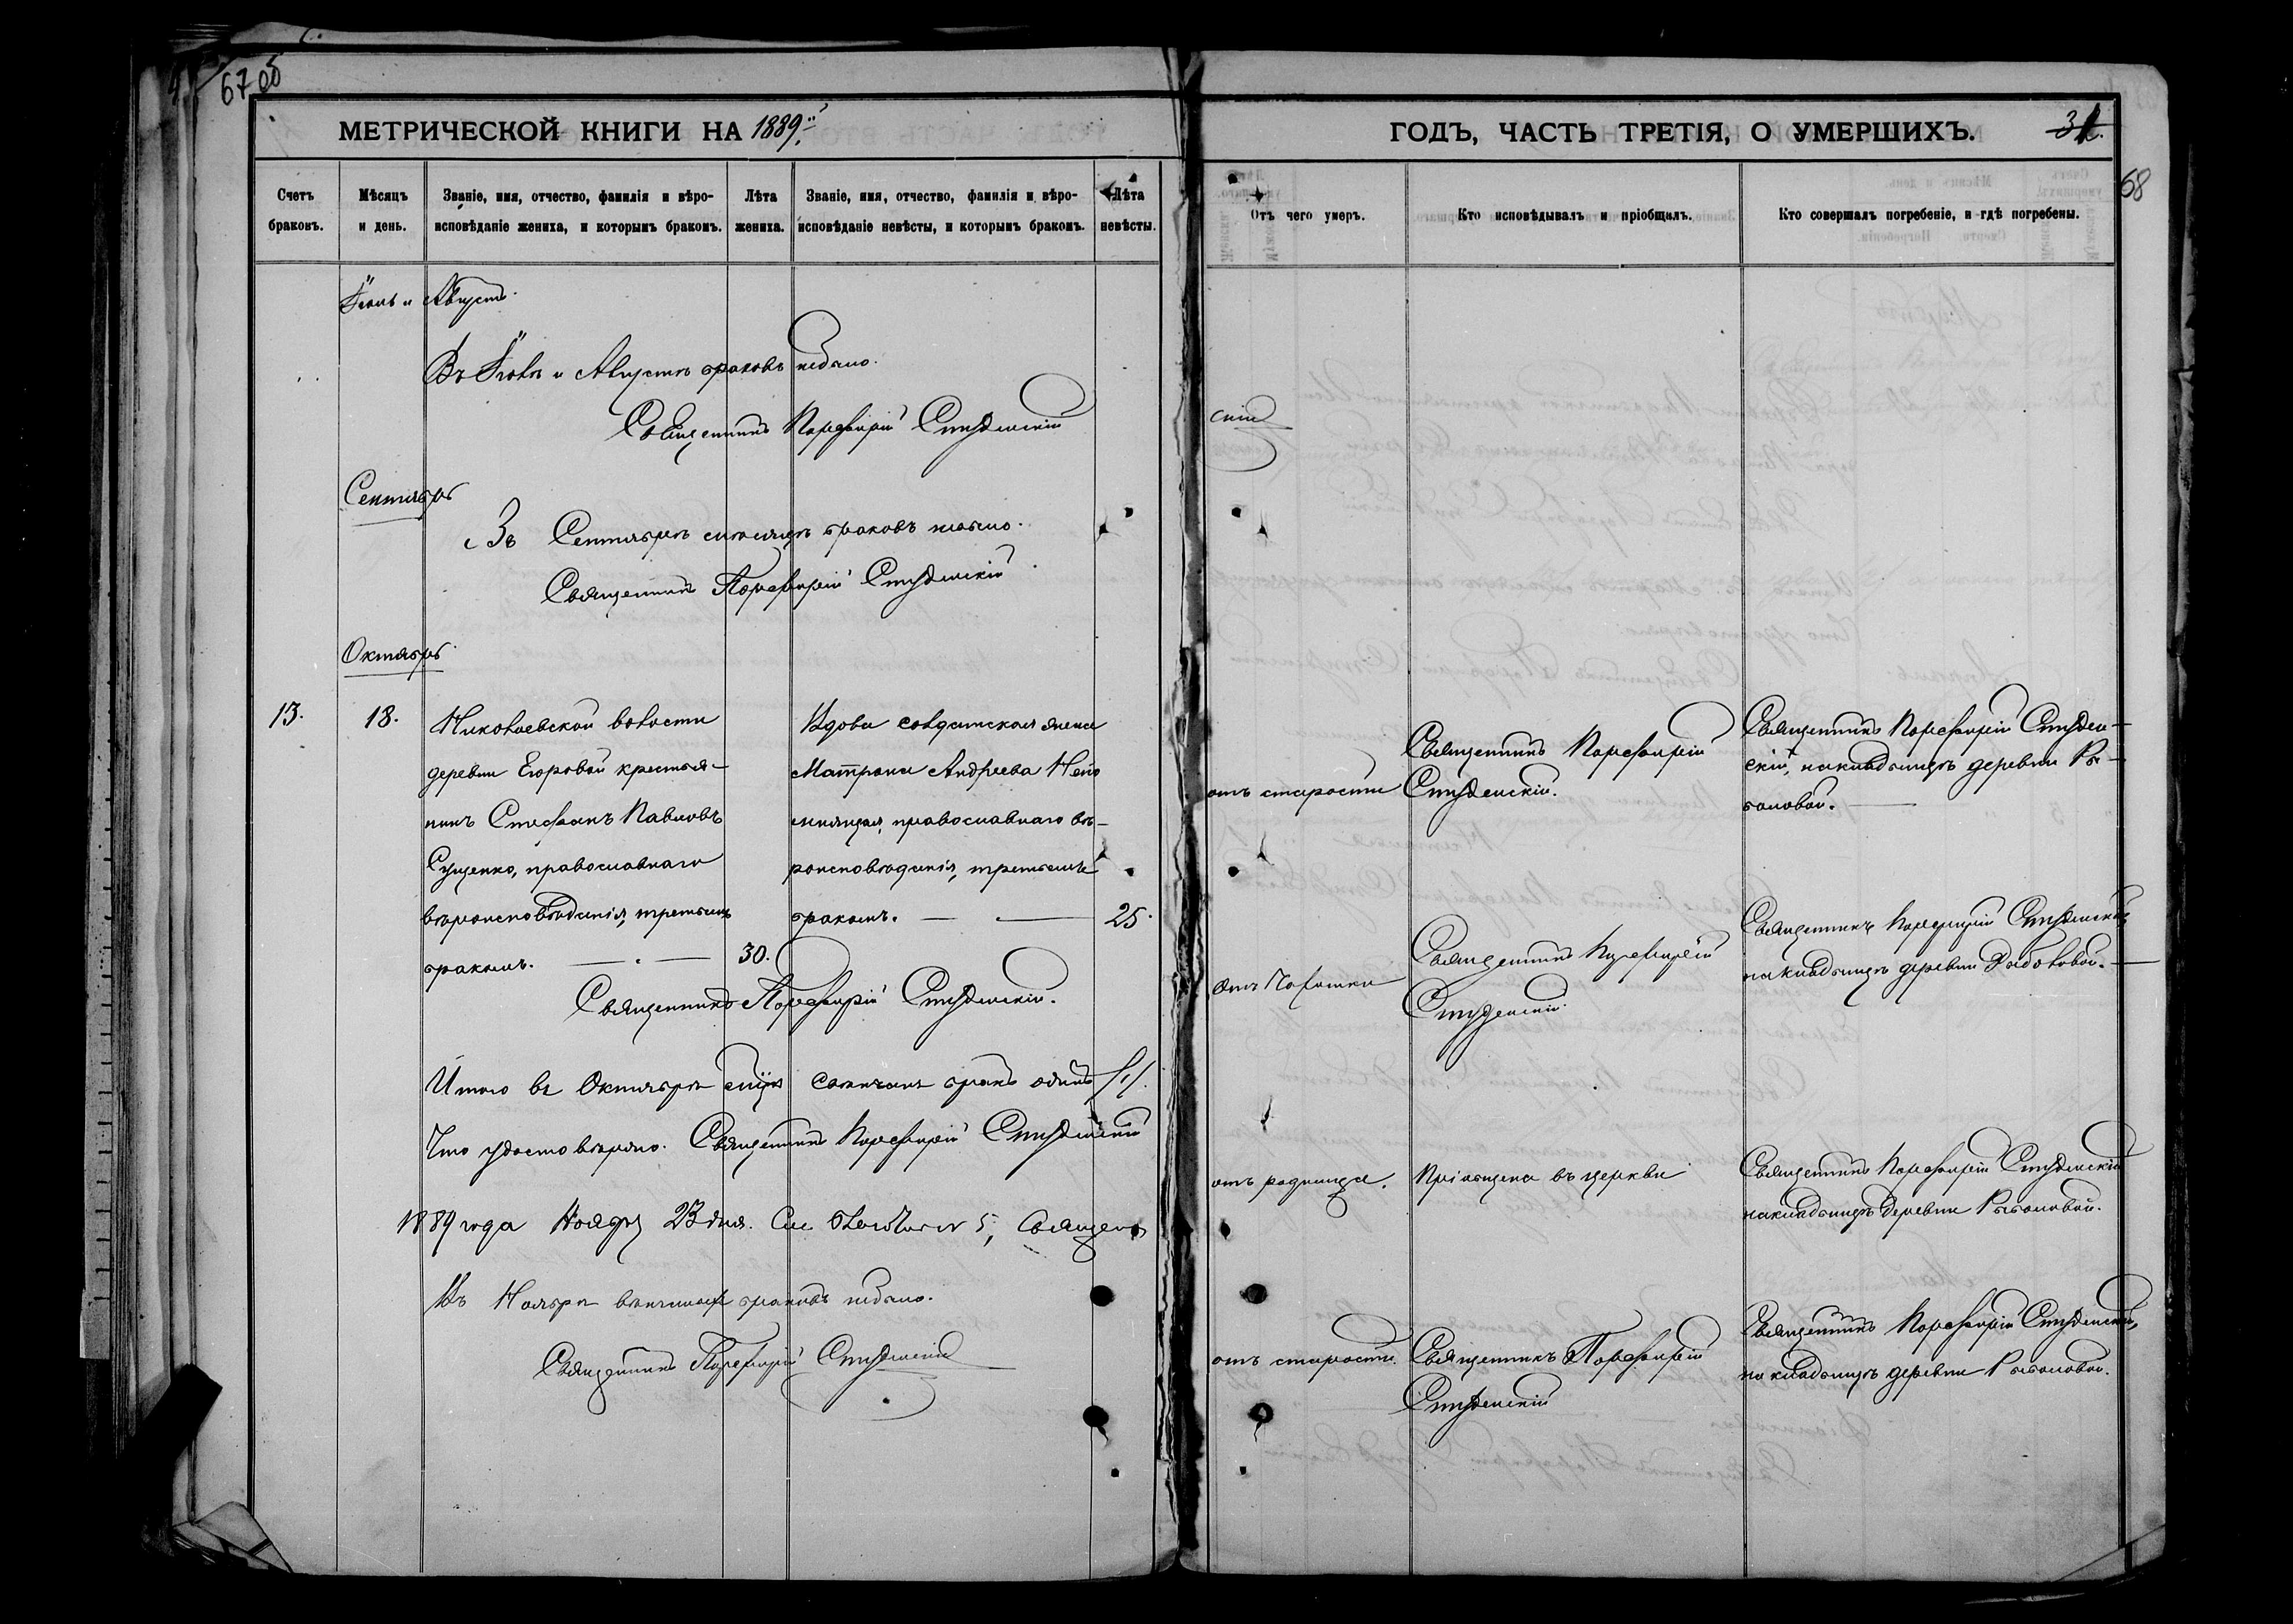 67 об
МЕТРИЧЕСКОЙ КНИГИ НА 1889
Счетъ браковъ.
Мѣсяцъ и день.
Званіе, имя, отчество, фамилія и вѣро-
исповѣданіе жениха, и которымъ бракомъ.
Лѣта жениха.
Званіе, имя, отчество, фамилія и вѣро-
исповѣданіе невѣсты, и которымъ бракомъ.
Лѣта невѣсты.
и Августъ.
Въ и Августѣ браковъ небыло.
Священникъ Порфирій Студенскій
Сентябрь
Въ Сентябрѣ мѣсяцѣ браковъ небыло.
Священникъ Порфирій Студенскій
Октябрь.
13.
18.
Николаевской волости
деревни Егоровой крестья-
нинъ Стефанъ Павловъ
Сущенко, православнаго
вѣроисповѣданія, третьимъ
бракомъ.
30.
Вдова солдатская жена
Матрона Андреева
православнаго вѣ-
роисповѣданія, третьимъ
бракомъ.
25.
Священникъ Порфирій Студенскій.
Итого въ Октябрѣ мѣсяцѣ бракъ одинъ /1/.
Что удостовѣряю. Священникъ Порфирій Студенскій
1889 года Ноября 23 дня. Священ
Въ Ноябрѣ браковъ небыло.
Священникъ Порфирій Студенскій
ГОДЪ, ЧАСТЬ ТРЕТІЯ, О УМЕРШИХЪ.
68
Отъ чего умеръ.
Кто исповѣдывалъ и пріобщилъ.
Кто совершалъ погребеніе, и гдѣ погребены.
скій
отъ старости
Священникъ Порфирій
Студенскій.
Священникъ Порфирій Студен-
скій, на кладбищѣ деревни Ры-
баловой.
отъ чахотки
Священникъ Порфирій
Студенскій
Священникъ Порфирій Студенскій,
на кладбищѣ деревни
отъ родимца.
Пріобщена въ церкви
Священникъ Порфирій Студенскій
на кладбищѣ деревни Рыбаловой.
отъ старости.
Священникъ Порфирій
Студенскій
Священникъ Порфирій Студенскій,
на кладбищѣ деревни Рыбаловой.